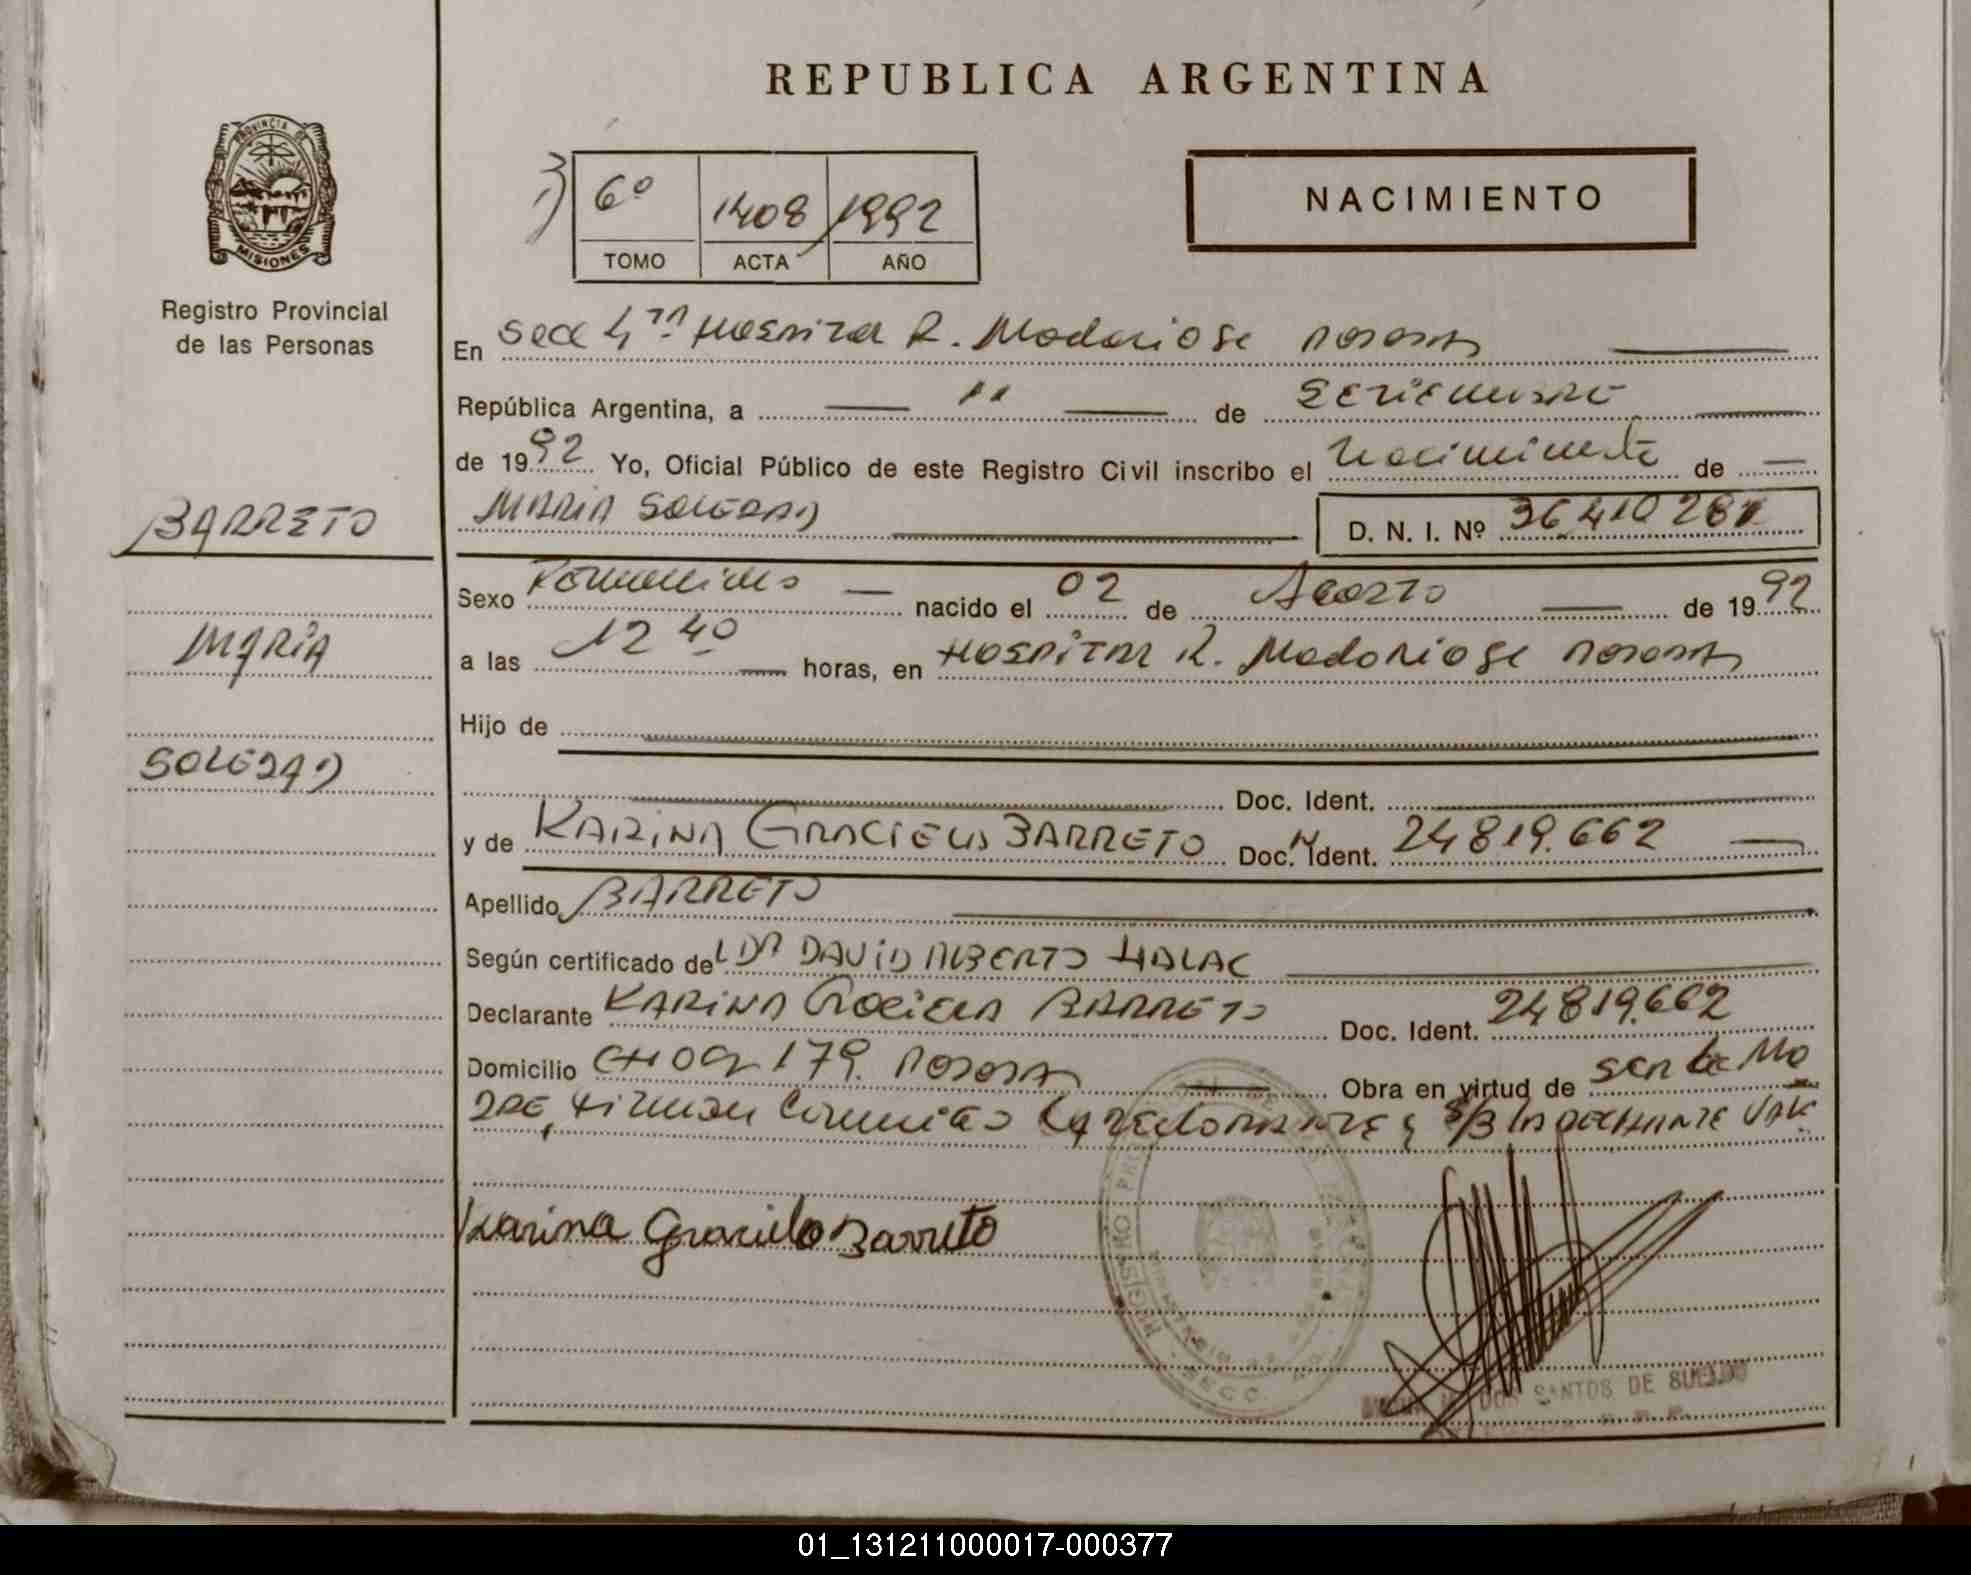 REPUBLICA ARGENTINA
PROVINCIA DE
MISIONES
Registro Provincial
de las Personas
6º 1408 1992
TOMO ACTA AÑO
NACIMIENTO
En Secc 4ta Hospital R. Madariaga Posadas
República Argentina, a 11 de Setiembre
de 1992 Yo, Oficial Público de este Registro Civil inscribo el Nacimiento de
BARRETO
MARIA SOLEDAD
D. N. I. Nº 36410281
Sexo Femenino nacido el 02 de Agosto de 1992
MARIA
a las 12 40 horas, en Hospital R. Madariaga Posadas
Hijo de
SOLEDAD
Doc. Ident.
y de KARINA GRACIELA BARRETO Doc. Ident. 24819.662
Apellido BARRETO
Según certificado del DR DAVID ALBERTO HALAC
Declarante KARINA Graciela BARRETO Doc. Ident. 24819.662
Domicilio CH 179. Posadas Obra en virtud de ser la Ma
dre, firman conmigo la declarante S/B LA DECLARANTE VALE
Karina Graciela Barreto
DOS SANTOS DE
01_131211000017-000377